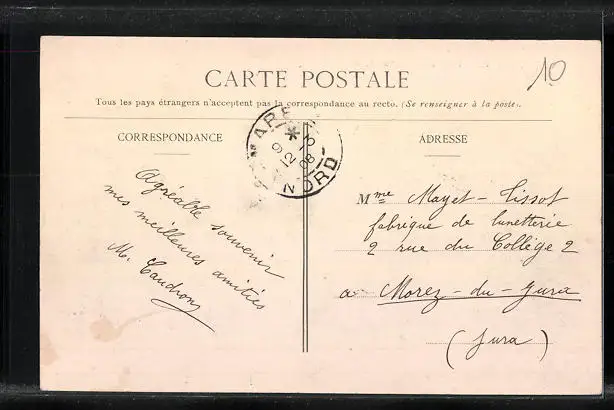 10
CARTE POSTALE
Tous les pays étrangers n'acceptent pas la correspondance au recto. (Se renseigner à la poste).
CORRESPONDANCE
Agréable souvenir
mes meilleures amitiés
M. Caudron
NORD
ADRESSE
Mme Mayet-Tissot
fabrique de lunetterie
2 rue du Collège 2
a Morez-du-Jura
(Jura)